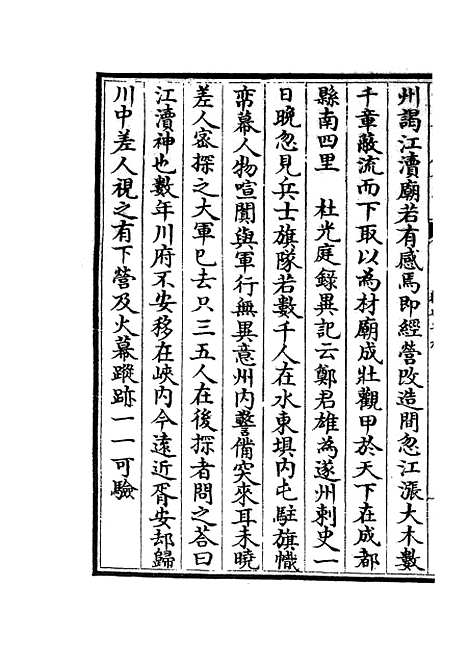 州謁江瀆廟若有感焉即經營改造間忽江漲大木數
千章蔽流而下取以為材廟成壯觀甲於天下在成都
縣南四里　杜光庭錄異記云鄭君雄為遂州刺史一
日晚忽見兵士旗隊若數千人在水東壩内屯駐旗幟
帟幕人物喧闐與軍行無異意州内警備突來耳未曉
差人密探之大軍已去只三五人在後探者問之荅曰
江瀆神也數年川府不安移在峽内今遠近胥安却歸
川中差人視之有下營及火幕蹤跡一一可驗